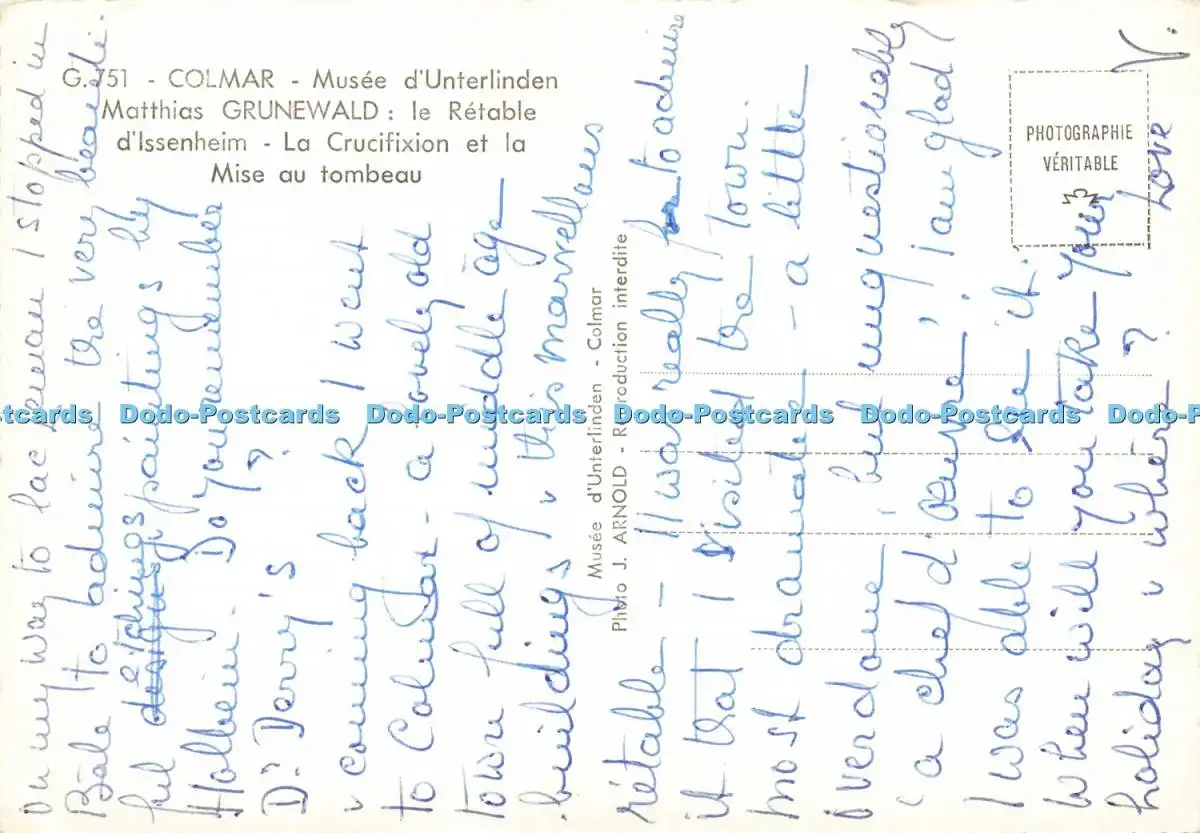 G.751 - COLMAR - Musée d'Unterlinden
Matthias GRUNEWALD : le Rétable
d'Issenheim - La Crucifixion et la
Mise au tombeau
PHOTOGRAPHIE
VÉRITABLE
Musée d'Unterlinden - Colmar
Photo J. ARNOLD - Reproduction interdite
On my way to lac Léman I stopped in
Bâle to admire the very beauti-
ful designs etchings paintings by
Holbein. Do you remember
Dr Derry's ?
coming back I went
to Colmar - a lovely old
town full of middle age
buildings & this marvellous
rétable - It was really to admire
it that I visited the town.
most dramatic - a little
overdone, but unquestionably
a chef d'œuvre ; I am glad
I was able to see it.
When will you take your
holiday & where ? Love
V.
Dodo-Postcards Dodo-Postcards Dodo-Postcards Dodo-Postcards Dodo-Postcards